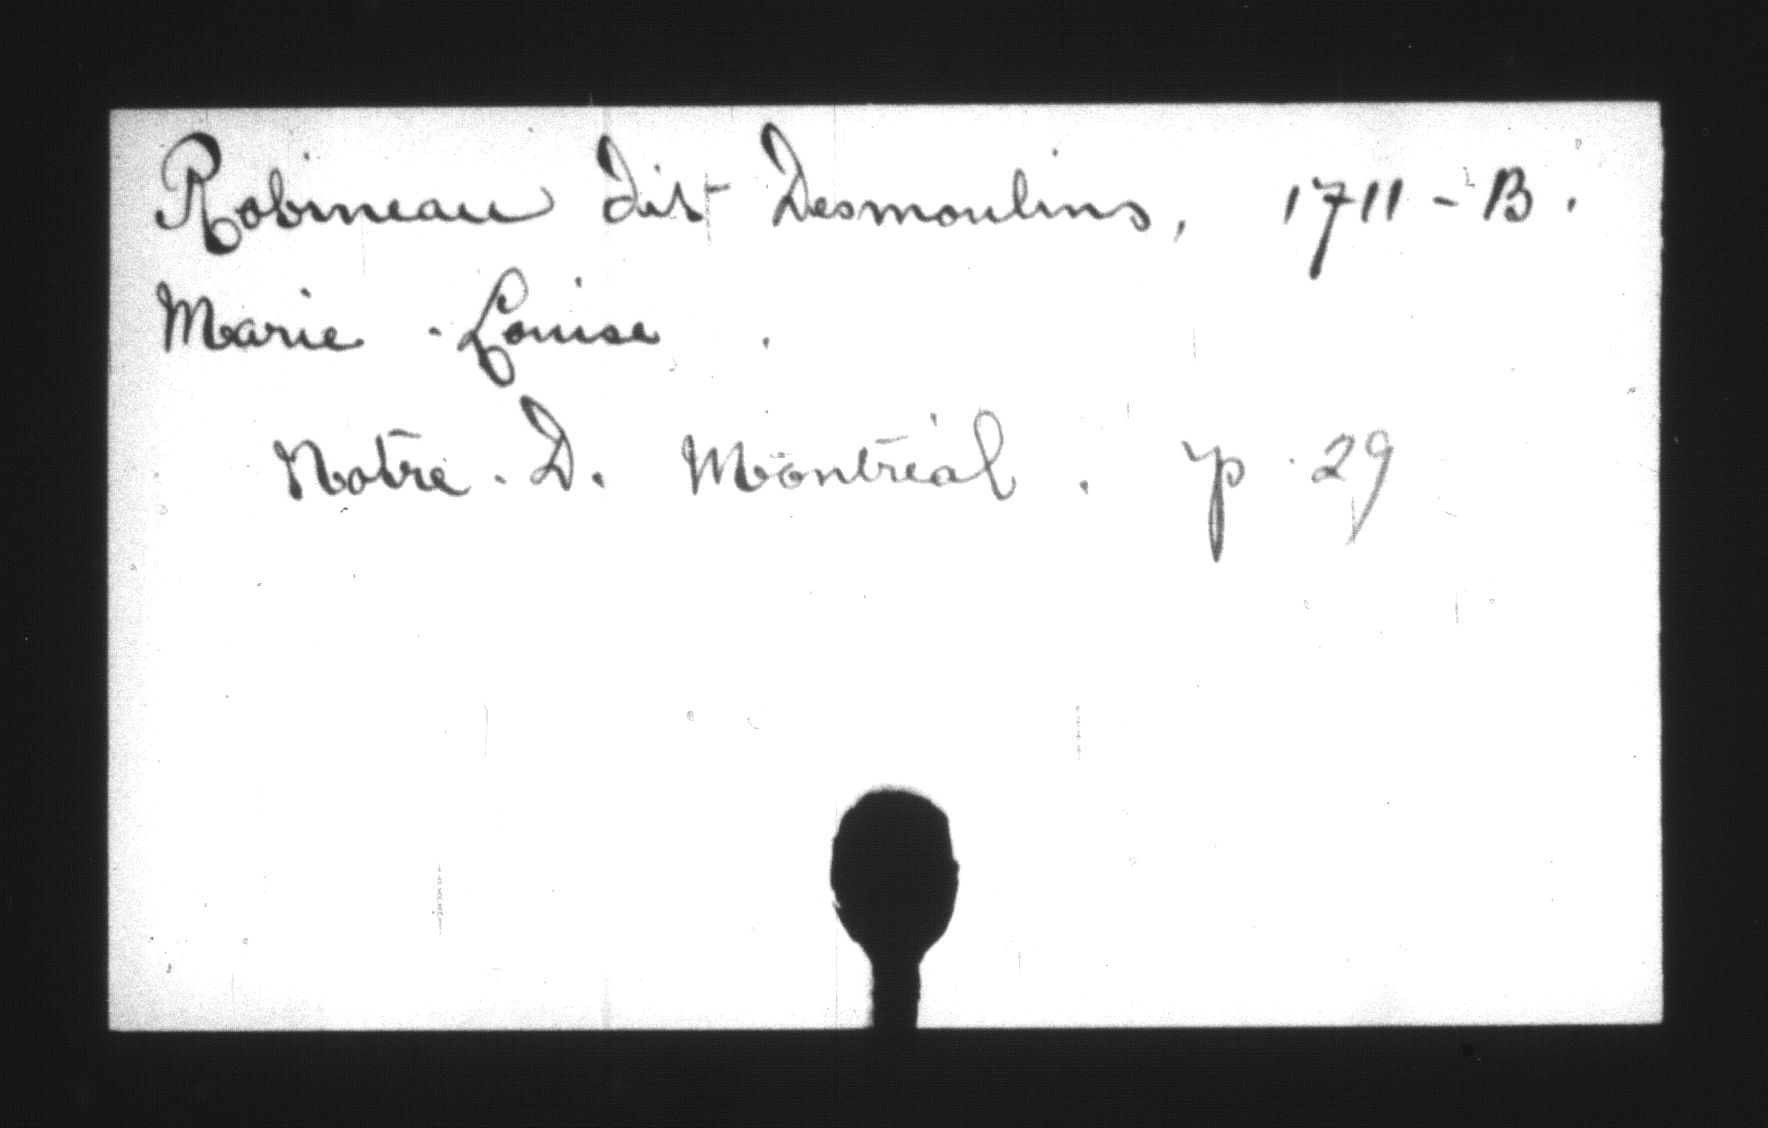 Robineau dit Desmoulins, 1711 - B.
Marie - Louise.
Notre. D. Montréal. p. 29